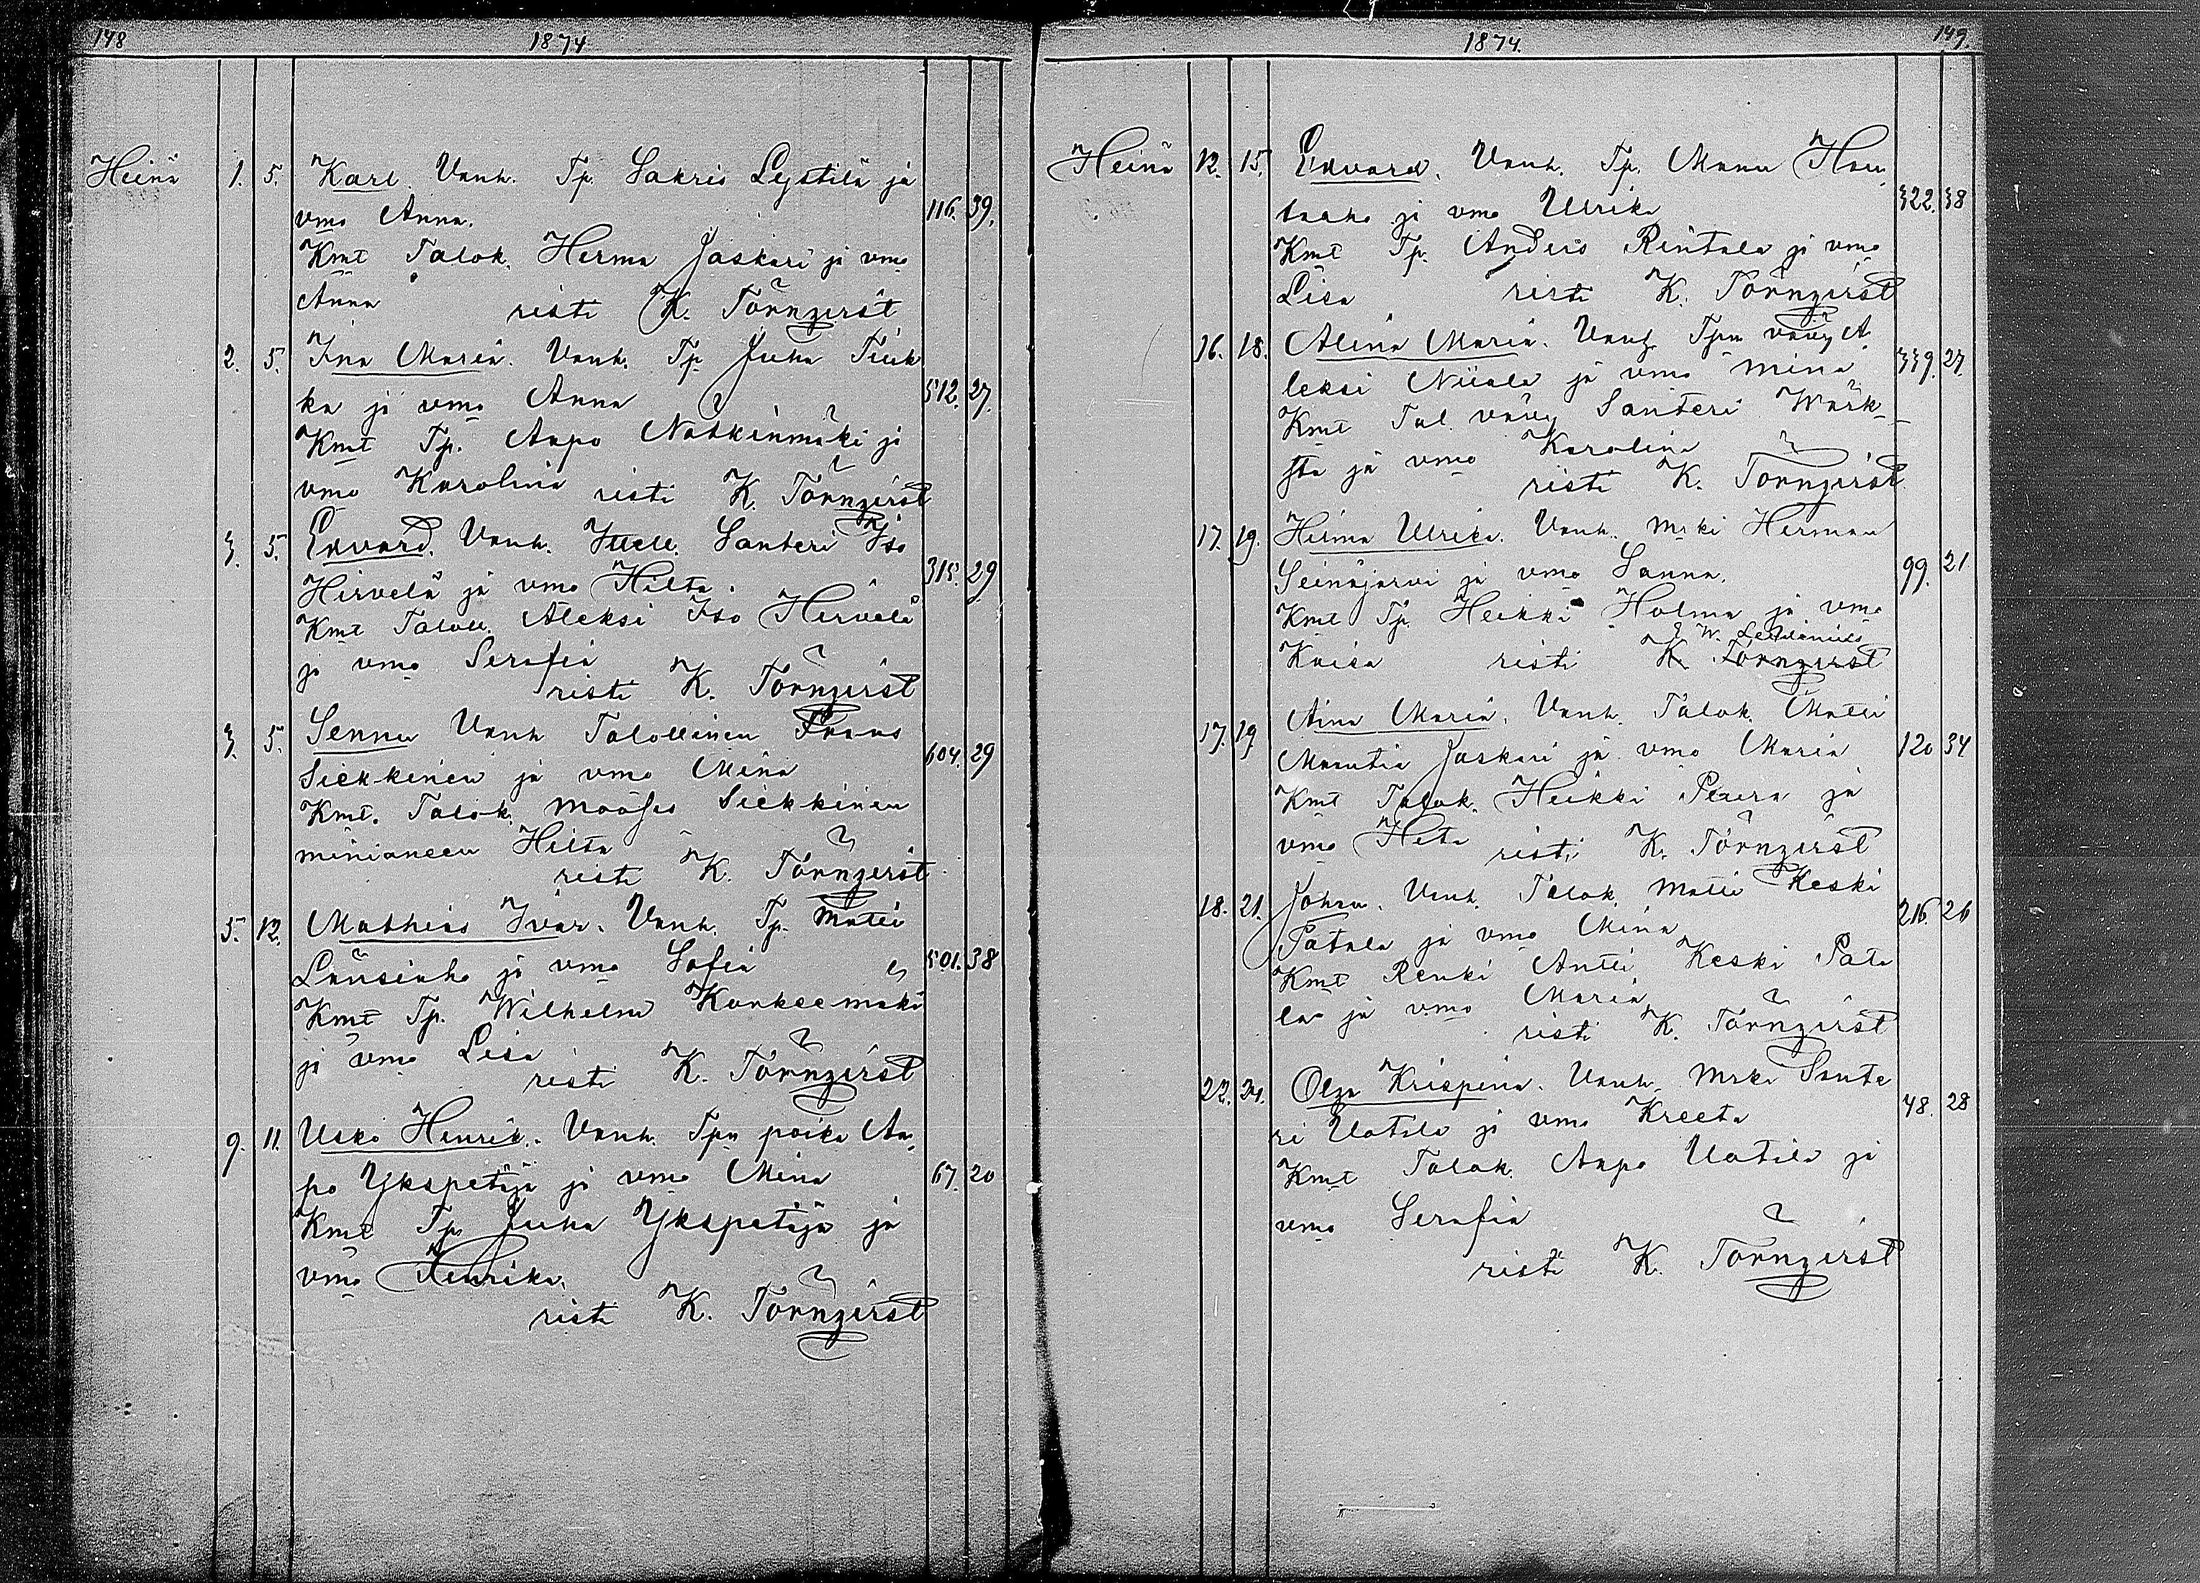 148 1874
Heinä 1. 5. Karl. Vanh. Tp. Sakris Lystilä ja
vmo Anna. 116. 39.
Kmt Talok. Herma Jaskari ja vmo
Anna risti K. Törnqvist
2. 5. Ina Maria. Vanh. Tp Juha Tiuk
ka ja vmo Anna 512. 27.
Kmt Tp. Aapo Natkinmäki ja
vmo Karolina risti K. Törnqvist
3. 5. Edvard. Vanh. Santeri Iso
Hirvelä ja vmo Hilta. 315. 29
Kmt Taloll. Aleksi Iso Hirvelä
ja vmo Serafia
risti K. Törnqvist
3. 5. Sennu Vanh Talollinen Frans
Siekkinen ja vmo Mina 604. 29
Kmt. Talok. Mooses Siekkinen
miniäneen Hilta
risti K. Törnqvist
5. 12. Mathias Ivar. Vanh. Tp. Matti
Länsiaho ja vmo Sofia 501. 38
Kmt Tp. Wilhelm Kankaemäki
ja vmo Lisa
risti K. Törnqvist
9. 11. Usko Henrik. Vanh. Tpn poika Aa
po Ykspetäjä ja vmo Mina 67. 20
Kmt Tp Juha Ykspetäjä ja
vmo Henrika.
risti K. Törnqvist
1874. 149.
Heinä 12. 15. Edvard. Vanh. Tp. Manu Hau
taaho ja vmo Ulrika 322. 38
Kmt Tp. Anders Rintala ja vmo
Lisa risti K. Törnqvist
16. 18. Alina Maria. Vanh Tpn vävy A
leksi Niiala ja vmo Mina 339. 27.
Kmt Tal. vävy Santeri Wärk
sta ja vmo Karolina
risti K. Törnqvist
17. 19. Hilma Ulrika. Vanh. Mrki Herman
Seinäjarvi ja vmo Sanna. 99. 21
Kmt Tp. Heikki Holma ja vmo
W.
Kaisa risti K. Törnqvist
17. 19 Aina Maria. Vanh. Talok. Matti
Maautia Jaskari ja vmo Maria 120 34
Kmt Talok. Heikki Peura ja
vmo Heta risti K. Törnqvist
18. 21. Johan. Vanh. Talok. Matti Keski
Patala ja vmo Mina 216 26
Kmt Renki Antti Keski Pata
la ja vmo Maria
risti K. Törnqvist
22. 24. Olga Krispina. Vanh. Mrki Sante
ri Uotila ja vmo Kreeta 48. 28
Kmt Talok. Aapo Uotila ja
vmo Serafia
risti K. Törnqvist